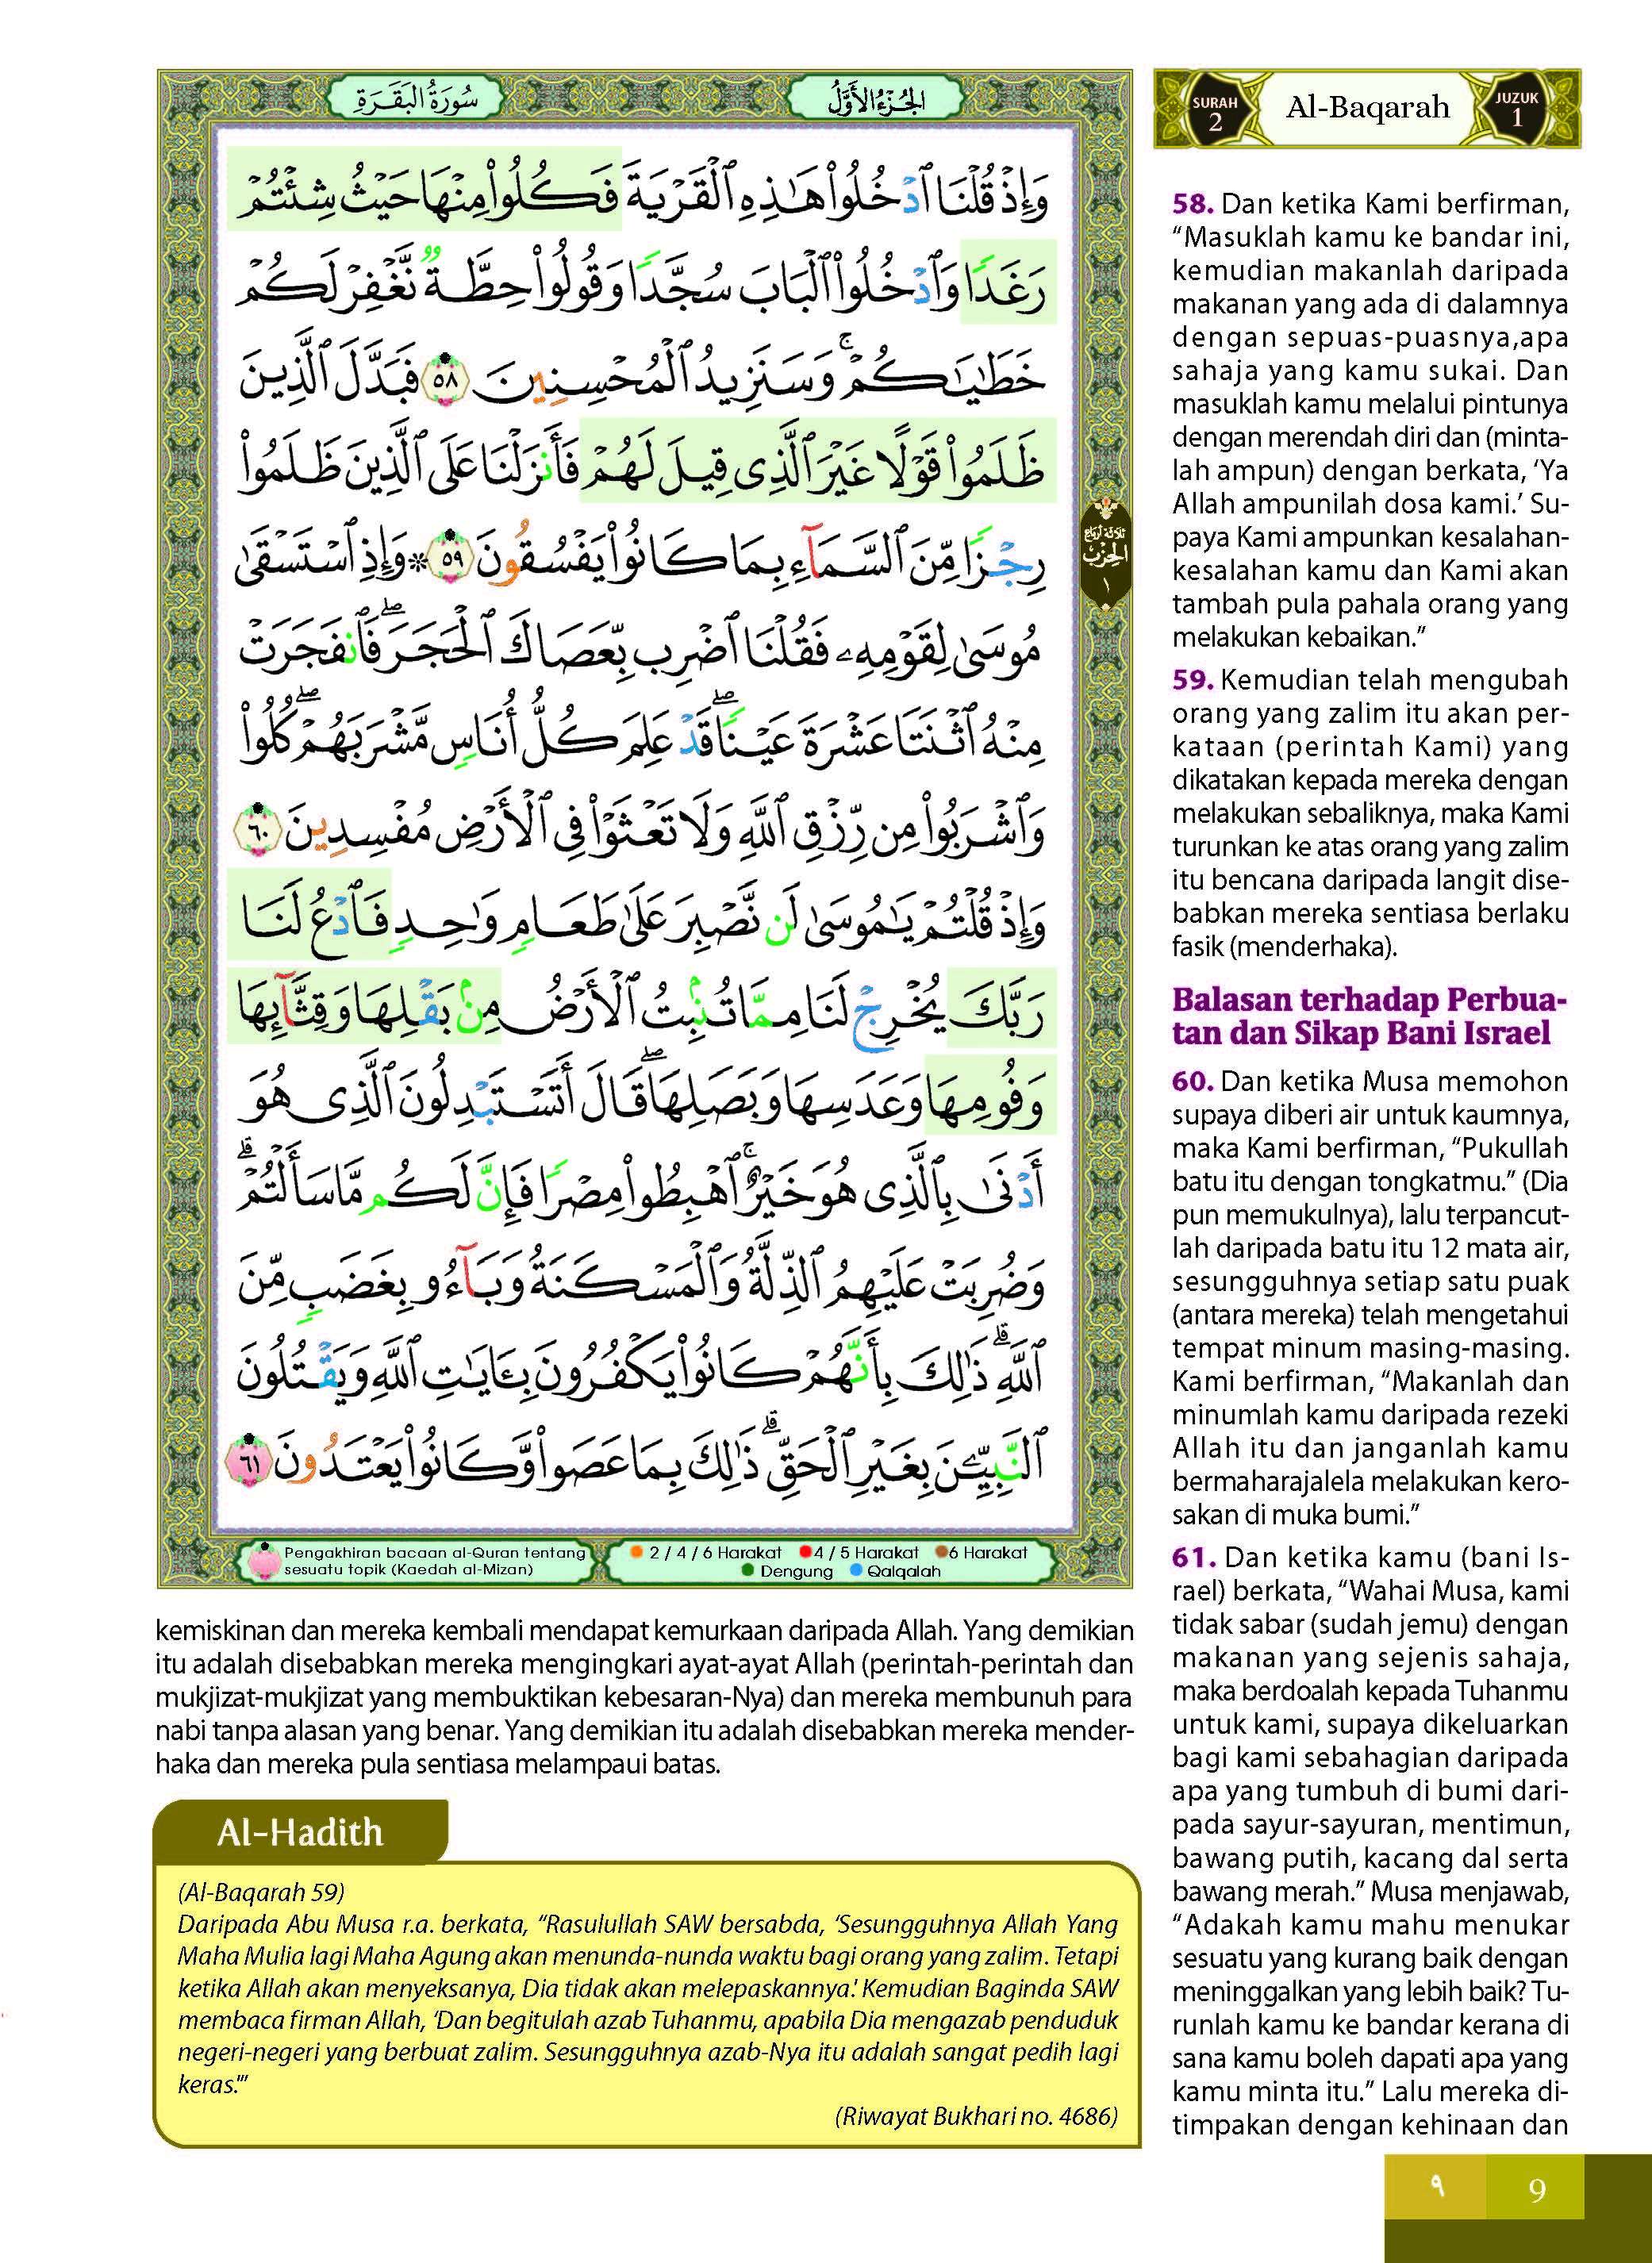 سُورَةُ البَقَرَةِ
الجُزْءُ الأَوَّلُ
SURAH
2
Al-Baqarah
JUZUK
1
وَإِذْ قُلْنَا ٱدْخُلُوا۟ هَـٰذِهِ ٱلْقَرْيَةَ فَكُلُوا۟ مِنْهَا حَيْثُ شِئْتُمْ
رَغَدًا وَٱدْخُلُوا۟ ٱلْبَابَ سُجَّدًا وَقُولُوا۟ حِطَّةٌ نَّغْفِرْ لَكُمْ
خَطَـٰيَـٰكُمْ ۚ وَسَنَزِيدُ ٱلْمُحْسِنِينَ ٥٨ فَبَدَّلَ ٱلَّذِينَ
ظَلَمُوا۟ قَوْلًا غَيْرَ ٱلَّذِى قِيلَ لَهُمْ فَأَنزَلْنَا عَلَى ٱلَّذِينَ ظَلَمُوا۟
رِجْزًا مِّنَ ٱلسَّمَآءِ بِمَا كَانُوا۟ يَفْسُقُونَ ٥٩ ۞ وَإِذِ ٱسْتَسْقَىٰ
مُوسَىٰ لِقَوْمِهِۦ فَقُلْنَا ٱضْرِب بِّعَصَاكَ ٱلْحَجَرَ ۖ فَٱنفَجَرَتْ
مِنْهُ ٱثْنَتَا عَشْرَةَ عَيْنًا ۖ قَدْ عَلِمَ كُلُّ أُنَاسٍ مَّشْرَبَهُمْ ۖ كُلُوا۟
وَٱشْرَبُوا۟ مِن رِّزْقِ ٱللَّهِ وَلَا تَعْثَوْا۟ فِى ٱلْأَرْضِ مُفْسِدِينَ ٦٠
وَإِذْ قُلْتُمْ يَـٰمُوسَىٰ لَن نَّصْبِرَ عَلَىٰ طَعَامٍ وَٰحِدٍ فَٱدْعُ لَنَا
رَبَّكَ يُخْرِجْ لَنَا مِمَّا تُنۢبِتُ ٱلْأَرْضُ مِنۢ بَقْلِهَا وَقِثَّآئِهَا
وَفُومِهَا وَعَدَسِهَا وَبَصَلِهَا ۖ قَالَ أَتَسْتَبْدِلُونَ ٱلَّذِى هُوَ
أَدْنَىٰ بِٱلَّذِى هُوَ خَيْرٌ ۚ ٱهْبِطُوا۟ مِصْرًا فَإِنَّ لَكُم مَّا سَأَلْتُمْ ۗ
وَضُرِبَتْ عَلَيْهِمُ ٱلذِّلَّةُ وَٱلْمَسْكَنَةُ وَبَآءُو بِغَضَبٍ مِّنَ
ٱللَّهِ ۗ ذَٰلِكَ بِأَنَّهُمْ كَانُوا۟ يَكْفُرُونَ بِـَٔايَـٰتِ ٱللَّهِ وَيَقْتُلُونَ
ٱلنَّبِيِّـۧنَ بِغَيْرِ ٱلْحَقِّ ۗ ذَٰلِكَ بِمَا عَصَوا۟ وَّكَانُوا۟ يَعْتَدُونَ ٦١
ثلاثة أرباع
الحزب
١
Pengakhiran bacaan al-Quran tentang
sesuatu topik (Kaedah al-Mizan)
2 / 4 / 6 Harakat 4 / 5 Harakat 6 Harakat
Dengung Qalqalah
58. Dan ketika Kami berfirman,
“Masuklah kamu ke bandar ini,
kemudian makanlah daripada
makanan yang ada di dalamnya
dengan sepuas-puasnya,apa
sahaja yang kamu sukai. Dan
masuklah kamu melalui pintunya
dengan merendah diri dan (minta-
lah ampun) dengan berkata, ‘Ya
Allah ampunilah dosa kami.’ Su-
paya Kami ampunkan kesalahan-
kesalahan kamu dan Kami akan
tambah pula pahala orang yang
melakukan kebaikan.”
59. Kemudian telah mengubah
orang yang zalim itu akan per-
kataan (perintah Kami) yang
dikatakan kepada mereka dengan
melakukan sebaliknya, maka Kami
turunkan ke atas orang yang zalim
itu bencana daripada langit dise-
babkan mereka sentiasa berlaku
fasik (menderhaka).
Balasan terhadap Perbua-
tan dan Sikap Bani Israel
60. Dan ketika Musa memohon
supaya diberi air untuk kaumnya,
maka Kami berfirman, “Pukullah
batu itu dengan tongkatmu.” (Dia
pun memukulnya), lalu terpancut-
lah daripada batu itu 12 mata air,
sesungguhnya setiap satu puak
(antara mereka) telah mengetahui
tempat minum masing-masing.
Kami berfirman, “Makanlah dan
minumlah kamu daripada rezeki
Allah itu dan janganlah kamu
bermaharajalela melakukan kero-
sakan di muka bumi.”
61. Dan ketika kamu (bani Is-
rael) berkata, “Wahai Musa, kami
tidak sabar (sudah jemu) dengan
makanan yang sejenis sahaja,
maka berdoalah kepada Tuhanmu
untuk kami, supaya dikeluarkan
bagi kami sebahagian daripada
apa yang tumbuh di bumi dari-
pada sayur-sayuran, mentimun,
bawang putih, kacang dal serta
bawang merah.” Musa menjawab,
“Adakah kamu mahu menukar
sesuatu yang kurang baik dengan
meninggalkan yang lebih baik? Tu-
runlah kamu ke bandar kerana di
sana kamu boleh dapati apa yang
kamu minta itu.” Lalu mereka di-
timpakan dengan kehinaan dan
kemiskinan dan mereka kembali mendapat kemurkaan daripada Allah. Yang demikian
itu adalah disebabkan mereka mengingkari ayat-ayat Allah (perintah-perintah dan
mukjizat-mukjizat yang membuktikan kebesaran-Nya) dan mereka membunuh para
nabi tanpa alasan yang benar. Yang demikian itu adalah disebabkan mereka mender-
haka dan mereka pula sentiasa melampaui batas.
Al-Hadith
(Al-Baqarah 59)
Daripada Abu Musa r.a. berkata, “Rasulullah SAW bersabda, ‘Sesungguhnya Allah Yang
Maha Mulia lagi Maha Agung akan menunda-nunda waktu bagi orang yang zalim. Tetapi
ketika Allah akan menyeksanya, Dia tidak akan melepaskannya.' Kemudian Baginda SAW
membaca firman Allah, ‘Dan begitulah azab Tuhanmu, apabila Dia mengazab penduduk
negeri-negeri yang berbuat zalim. Sesungguhnya azab-Nya itu adalah sangat pedih lagi
keras.'”
(Riwayat Bukhari no. 4686)
٩ 9